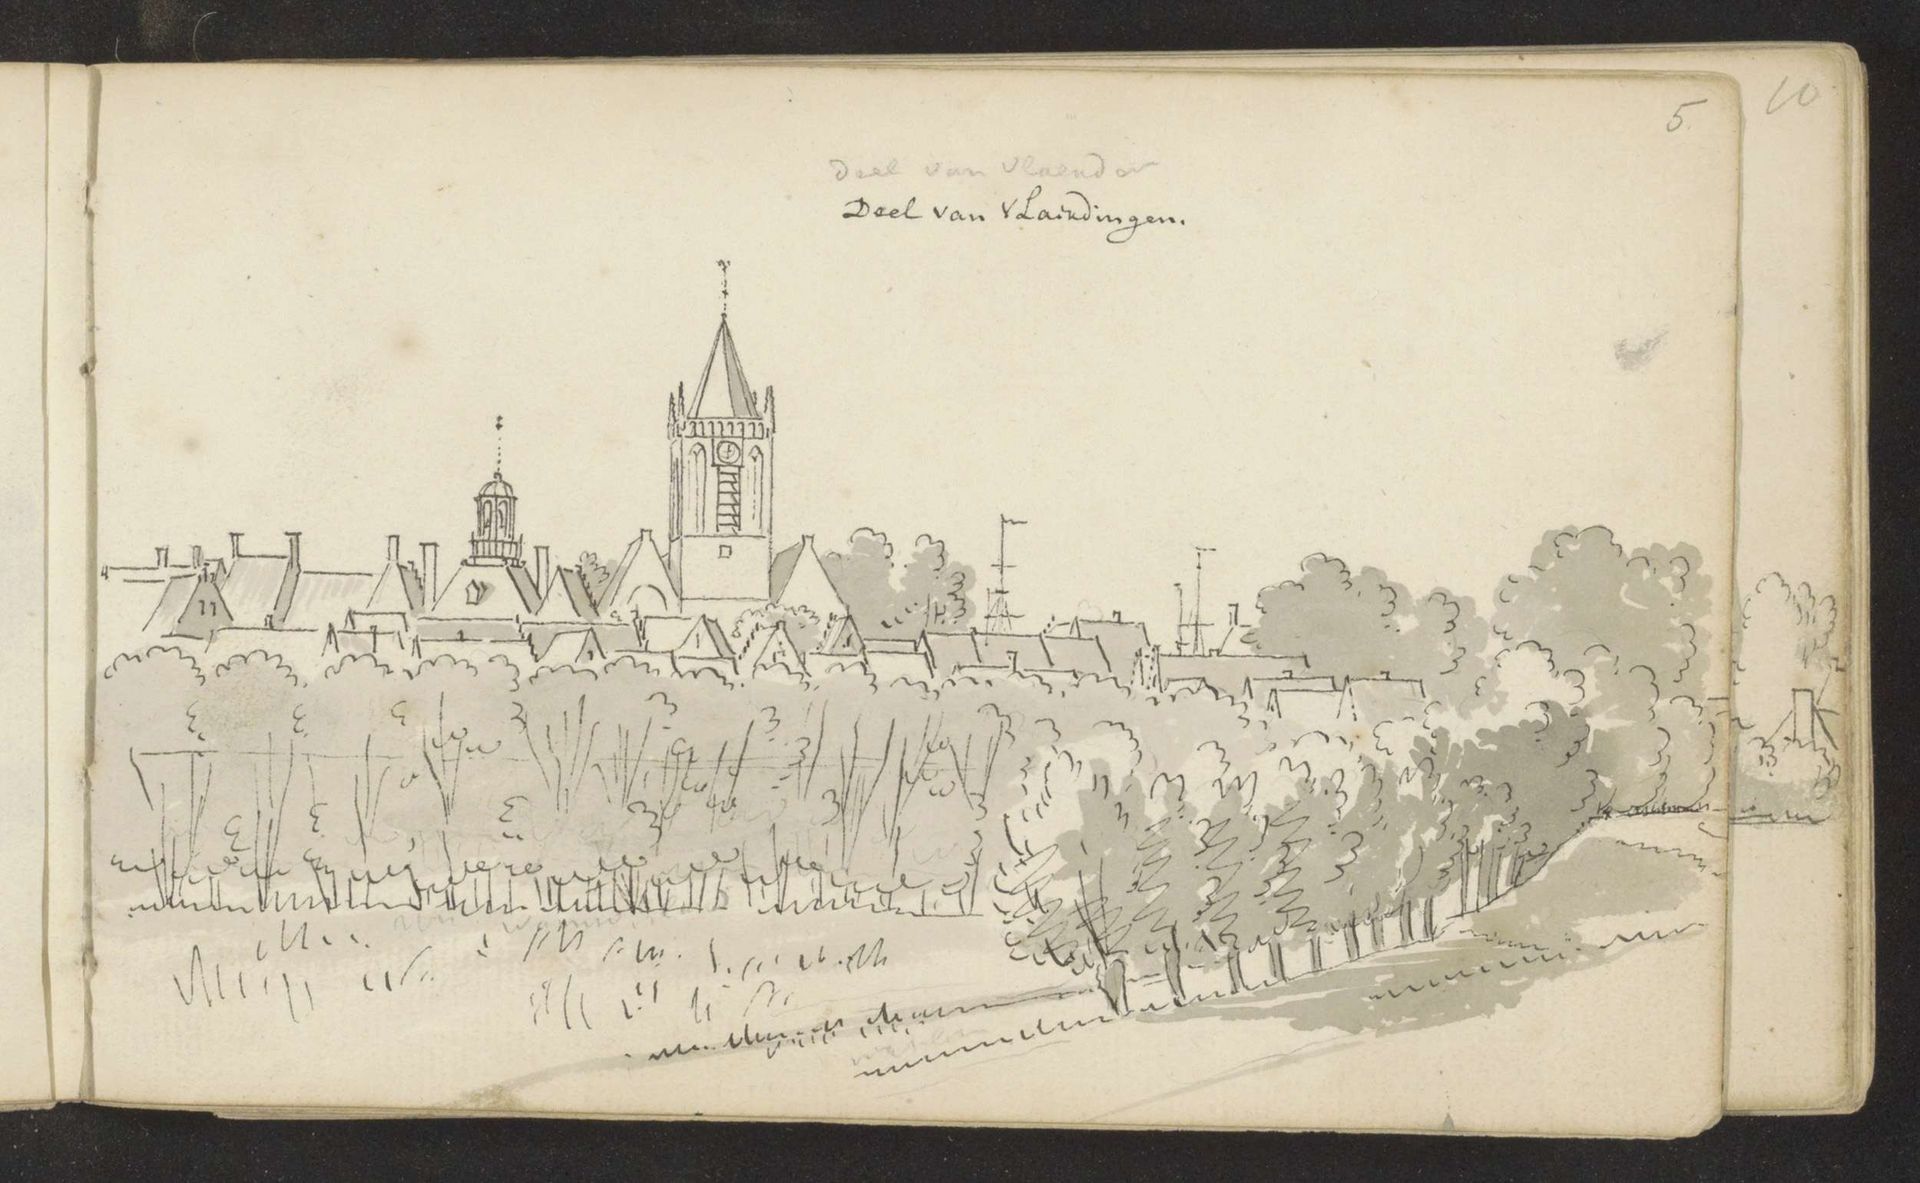 5.
10
Deel van Vlaend
Deel van VLaindingen.